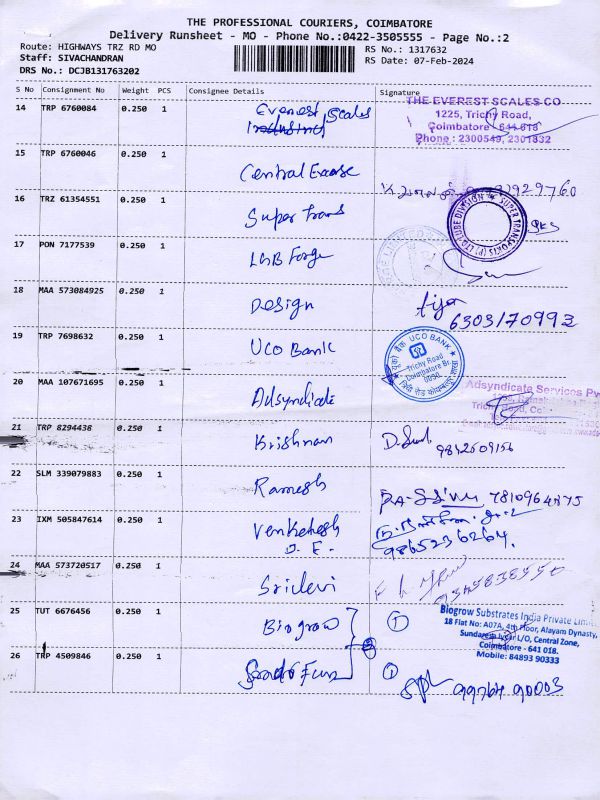 THE PROFESSIONAL COURIERS, COIMBATORE
Delivery Runsheet - MO - Phone No.:0422-3505555 - Page No.:2
Route: HIGHWAYS TRZ RD MO
RS No.: 1317632
Staff: SIVACHANDRAN
RS Date: 07-Feb-2024
DRS No.: DCJB131763202
S No Consignment No Weight PCS Consignee Details Signature
14 TRP 6760084 0.250 1 Everest Scales
THE EVEREST SCALES CO
1225, Trichy Road,
Coimbatore - 641 018
Phone : 2300549, 2301832
15 TRP 6760046 0.250 1 Central Excise
16 TRZ 61354551 0.250 1 Super Trans
SUPER TRANSPORTS (P) LTD
DIVISION
17 PON 7177539 0.250 1 LGB Forge
18 MAA 573084925 0.250 1 Design
6303170992
19 TRP 7698632 0.250 1 UCO Bank
UCO BANK
Trichy Road
Coimbatore Br.
0090
20 MAA 107671695 0.250 1 Adsyndicate
Adsyndicate Services Pv
21 TRP 8294438 0.250 1 Krishnan
9842509156
22 SLM 339079883 0.250 1 Ramesh
7810964875
23 IXM 505847614 0.250 1 Venkatesh
9865236264.
24 MAA 573720517 0.250 1 Sridevi
25 TUT 6676456 0.250 1 Biogrow
Biogrow Substrates India Private Limit
18 Flat No: A07A, 4th Floor, Alayam Dynasty,
Sundaresa Iyer L/O, Central Zone,
Coimbatore - 641 018.
Mobile: 84893 90333
26 TRP 4509846 0.250 1
99764 90003